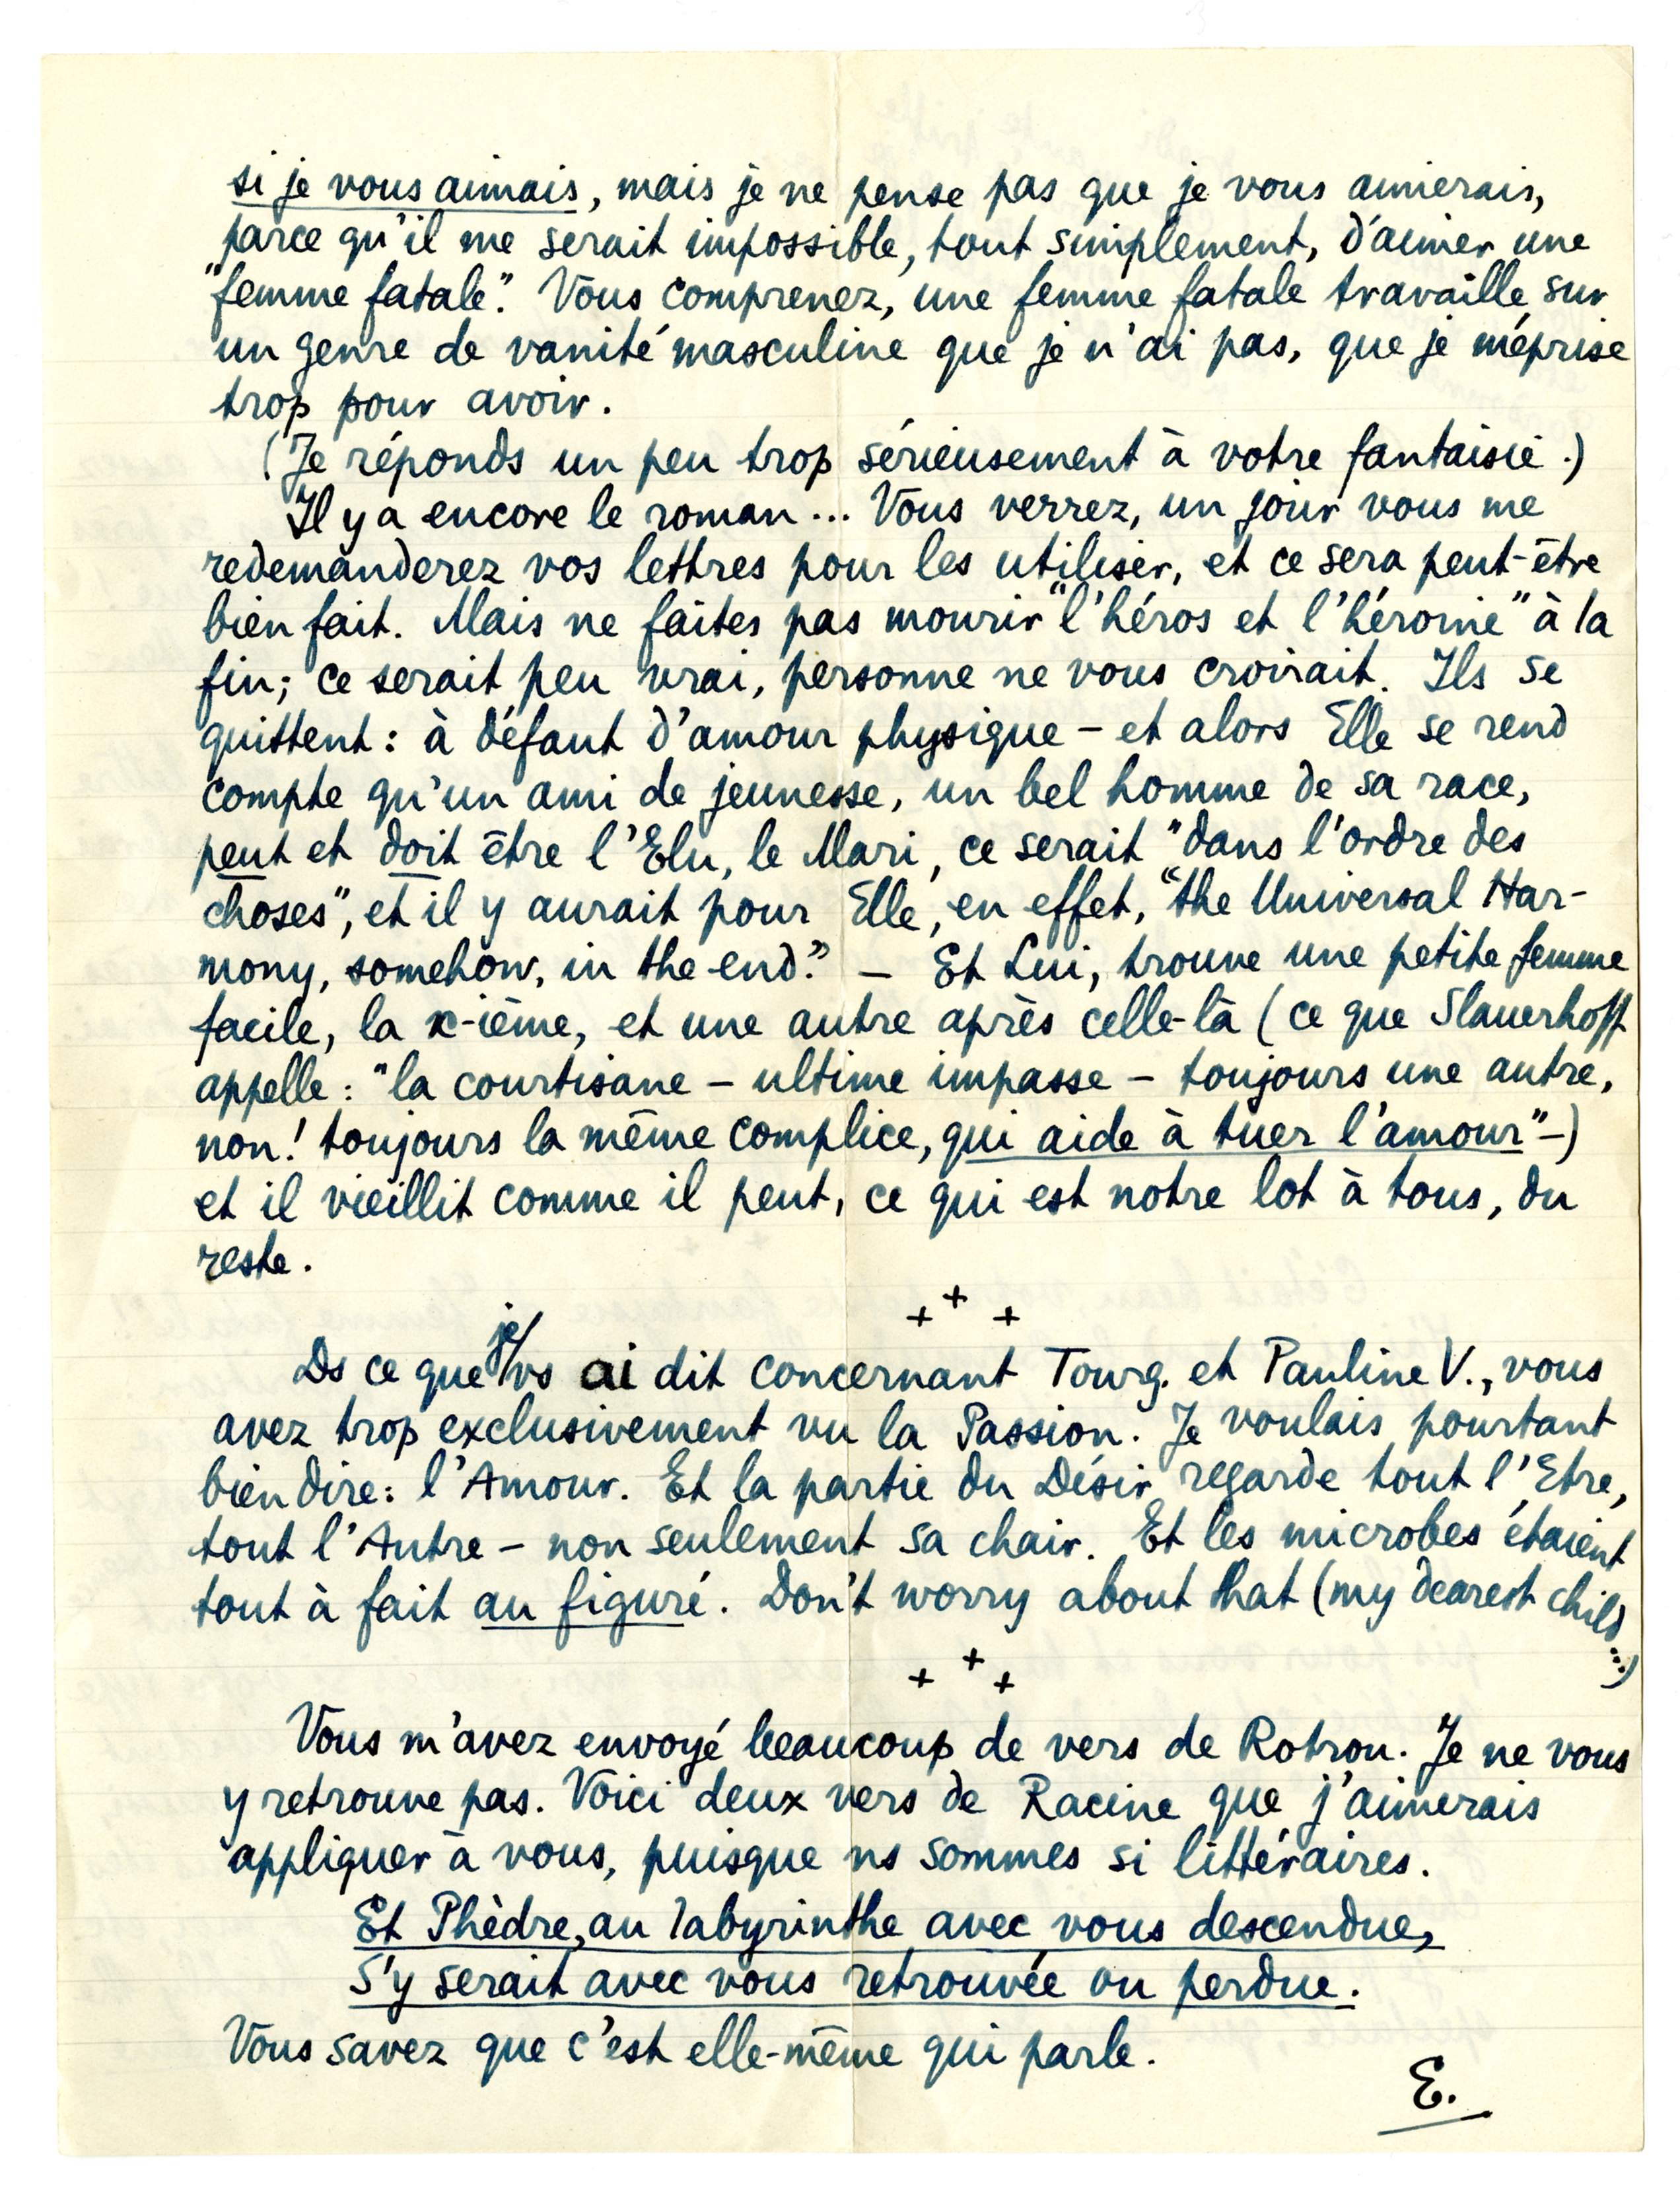 si je vous aimais, mais je ne pense pas que je vous aimerais,
parce qu'il me serait impossible, tout simplement, d'aimer une
"femme fatale". Vous comprenez, une femme fatale travaille sur
un genre de vanité masculine que je n'ai pas, que je méprise
trop pour avoir.
(Je réponds un peu trop sérieusement à votre fantaisie.)
Il y a encore le roman... Vous verrez, un jour vous me
redemanderez vos lettres pour les utiliser, et ce sera peut-être
bien fait. Mais ne faites pas mourir "l'héros et l'héroïne" à la
fin; ce serait peu vrai, personne ne vous croirait. Ils se
quittent: à défaut d'amour physique – et alors Elle se rend
compte qu'un ami de jeunesse, un bel homme de sa race,
peut et doit être l'Elu, le Mari, ce serait "dans l'ordre des
choses", et il y aurait pour Elle, en effet, "the Universal Har-
mony, somehow, in the end." – Et Lui, trouve une petite femme
facile, la x-ième, et une autre après celle-là (ce que Slauerhoff
appelle: "la courtisane – ultime impasse – toujours une autre,
non! toujours la même complice, qui aide à tuer l'amour"–)
et il vieillit comme il peut, ce qui est notre lot à tous, du
reste.
+ + +
Ds ce que je vs ai dit concernant Tourg. et Pauline V., vous
avez trop exclusivement vu la Passion. Je voulais pourtant
bien dire: l'Amour. Et la partie du Désir regarde tout l'Etre,
tout l'Autre – non seulement sa chair. Et les microbes étaient
tout à fait au figuré. Don't worry about that (my dearest child
...)
+ + +
Vous m'avez envoyé beaucoup de vers de Rotrou. Je ne vous
y retrouve pas. Voici deux vers de Racine que j'aimerais
appliquer à vous, puisque ns sommes si littéraires.
Et Phèdre, au labyrinthe avec vous descendue,
S'y serait avec vous retrouvée ou perdue.
Vous savez que c'est elle-même qui parle.
E.